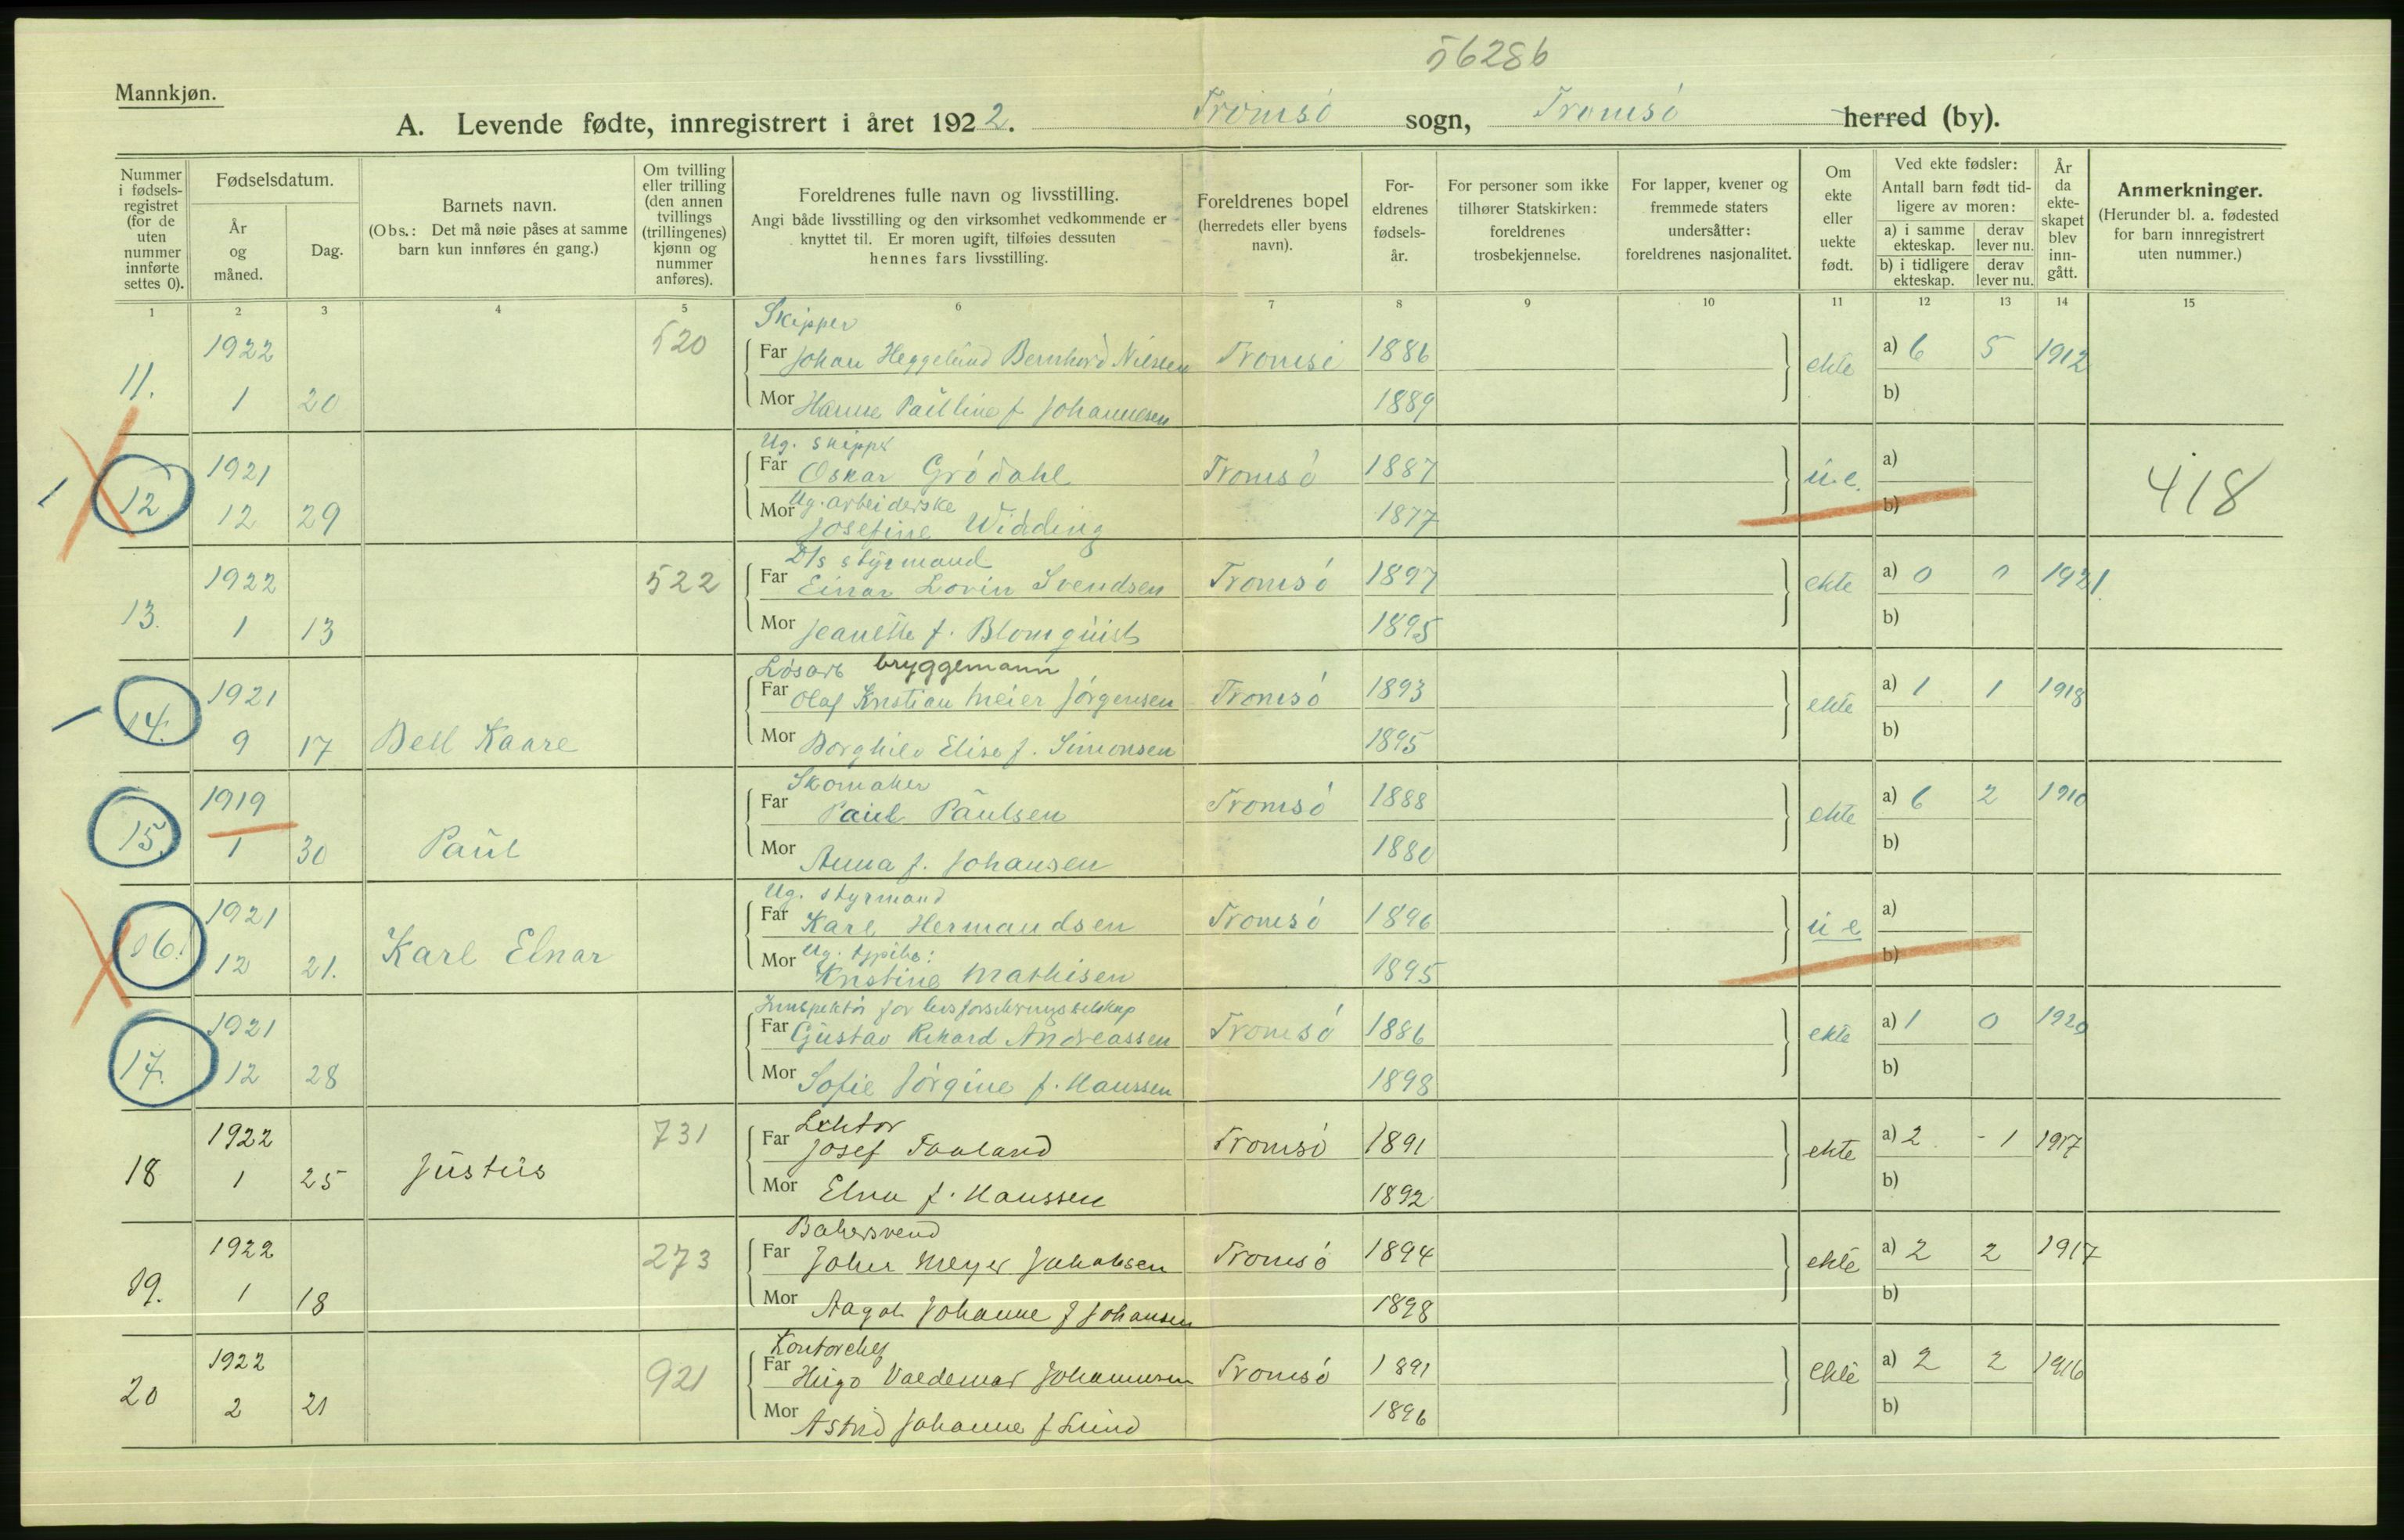 56286
Mannkjøn.
A. Levende fødte, innregistrert i året 1922. Tromsö sogn, Tromsö herred (by).
Nummer i fødselsregistret (for de uten nummer innførte settes 0).
Fødselsdatum.
År og måned.
Dag.
Barnets navn.
(Obs.: Det må nøie påses at samme barn kun innføres én gang.)
Om tvilling eller trilling (den annen tvillings (trillingenes) kjønn og nummer anføres).
Foreldrenes fulle navn og livsstilling.
Angi både livsstilling og den virksomhet vedkommende er knyttet til. Er moren ugift, tilføies dessuten hennes fars livsstilling.
Foreldrenes bopel (herredets eller byens navn).
Foreldrenes fødselsår.
For personer som ikke tilhører Statskirken: foreldrenes trosbekjennelse.
For lapper, kvener og fremmede staters undersåtter: foreldrenes nasjonalitet.
Om ekte eller uekte født.
Ved ekte fødsler:
Antall barn født tidligere av moren:
a) i samme ekteskap.
derav lever nu.
b) i tidligere ekteskap.
derav lever nu.
År da ekteskapet blev inngått.
Anmerkninger.
(Herunder bl. a. fødested for barn innregistrert uten nummer.)
1 2 3 4 5 6 7 8 9 10 11 12 13 14 15
Skipper
11. 1922 520 Far Johan Heggelund Bernhard Nilsen Tromsö 1886 ekte a) 6 5 1912
1 20 Mor Hanne Pauline f Johannesen 1889 b)
Ug. skipper
12. 1921 Far Oskar Grödahl Tromsö 1887 u.e. a) 418
Ug. arbeiderske
12 29 Mor Josefine Widding 1877 b)
D/s styrmand
13. 1922 522 Far Einar Lorin Svendsen Tromsö 1897 ekte a) 0 0 1921.
1 13 Mor Jeanette f. Blomquist 1895 b)
Løsarb bryggemann
14. 1921 Far Olaf Kristian Meier Jörgensen Tromsö 1893 ekte a) 1 1 1918
9 17 Dell Kaare Mor Borghild Elise f. Simonsen 1895 b)
Skomaker
15. 1919 Far Paul Paulsen Tromsö 1888 ekte a) 6 2 1910
1 30 Paul Mor Anna f. Johansen 1880 b)
Ug. styrmand
16. 1921 Far Karl Hermandsen Tromsö 1896 u e a)
Ug.
12 21. Karl Elnar Mor Kristine Mathisen 1895 b)
17. 1921 Far Gustav Rikard Andreassen Tromsö 1886 ekte a) 1 0 1920
12 28 Mor Sofie Jörgine f. Hanssen 1898 b)
Lektor
18 1922 731 Far Josef Traland Tromsö 1891 ekte a) 2 - 1 1917
1 25 Justus Mor Elna f. Hanssen 1892 b)
Bakersvend
19. 1922 273 Far Johan Meyer Jakobsen Tromsö 1894 ekte a) 2 2 1917
1 18 Mor Aagot Johanne f Johansen 1898 b)
Kontorchef
20 1922 921 Far Hugo Valdemar Johannesen Tromsö 1891 ekte a) 2 2 1916
2 21 Mor Astrid Johanne f Lund 1896 b)